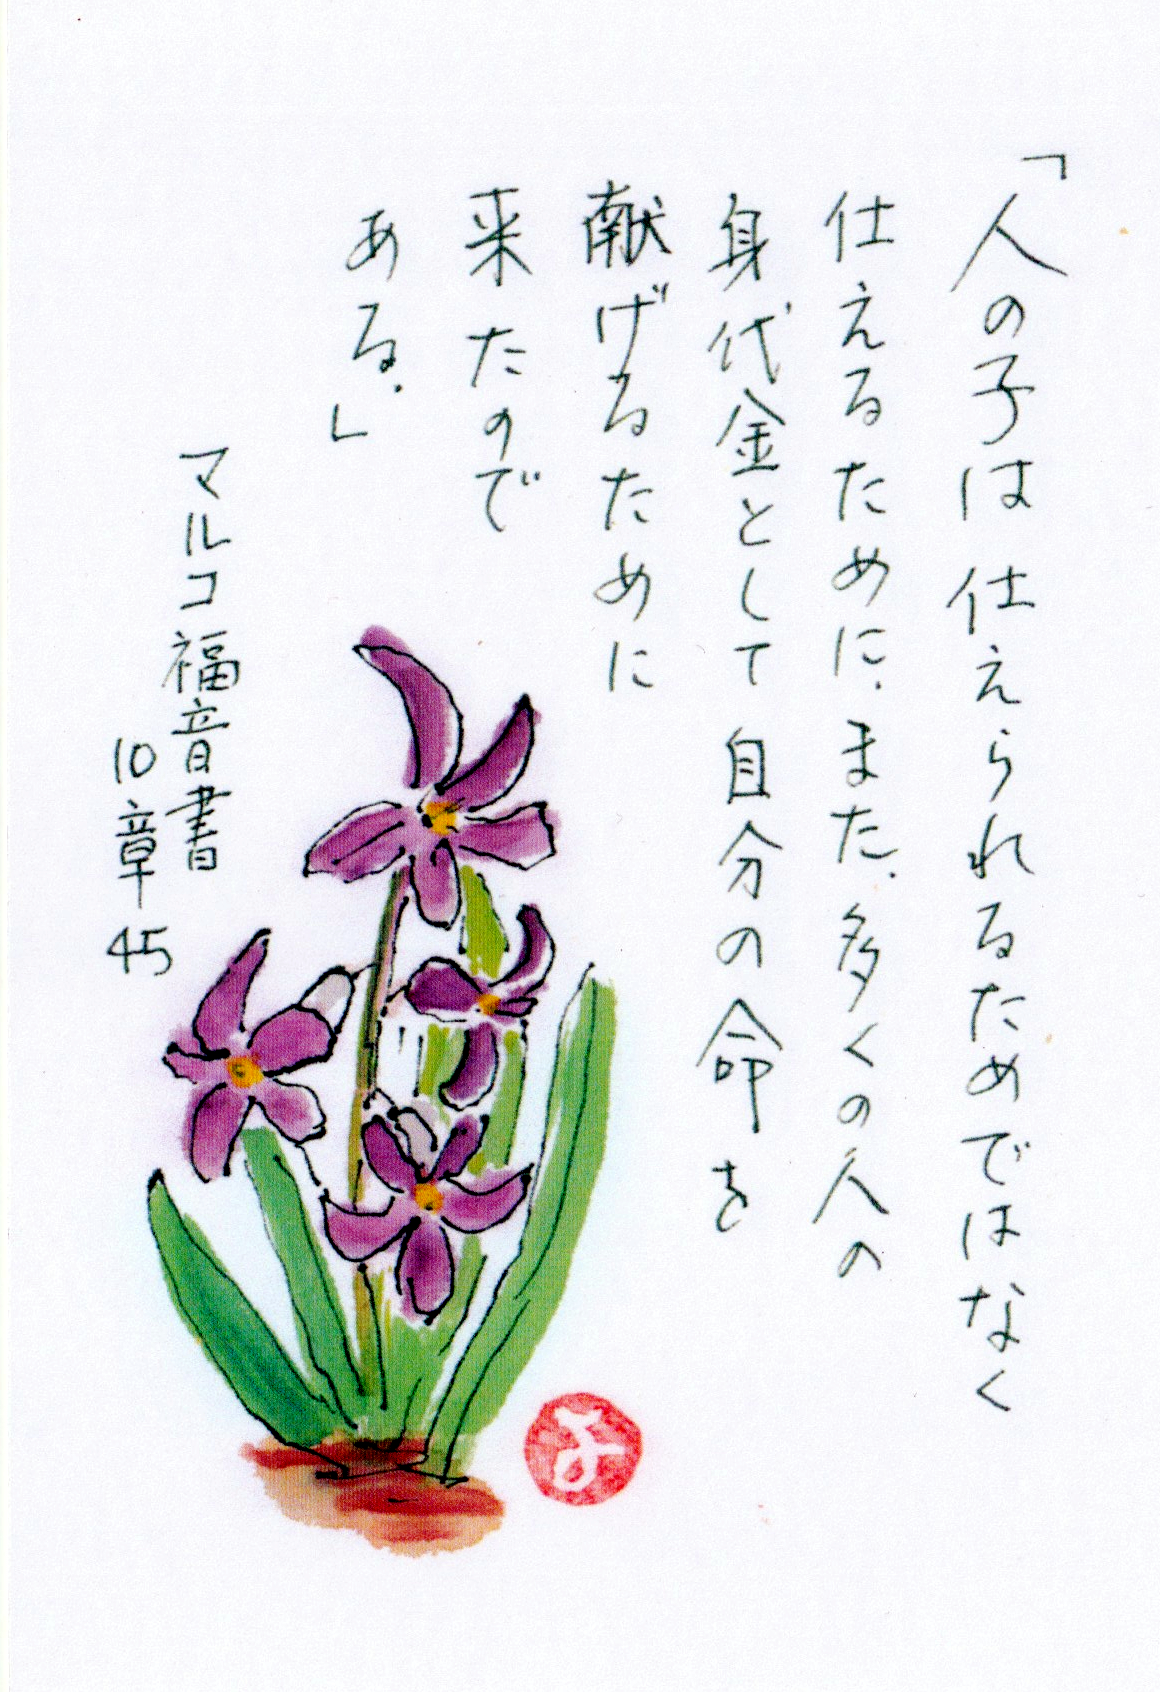 「人の子は仕えられるためではなく
仕えるために、また、多くの人の
身代金として自分の命を
献げるために
来たので
ある。」
マルコ福音書
10章45
よ